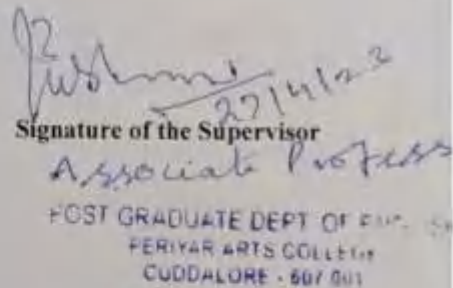 27/4/22
Signature of the Supervisor
Associate Profess
POST GRADUATE DEPT OF
PERIYAR ARTS COLLEGE
CUDDALORE - 607 001